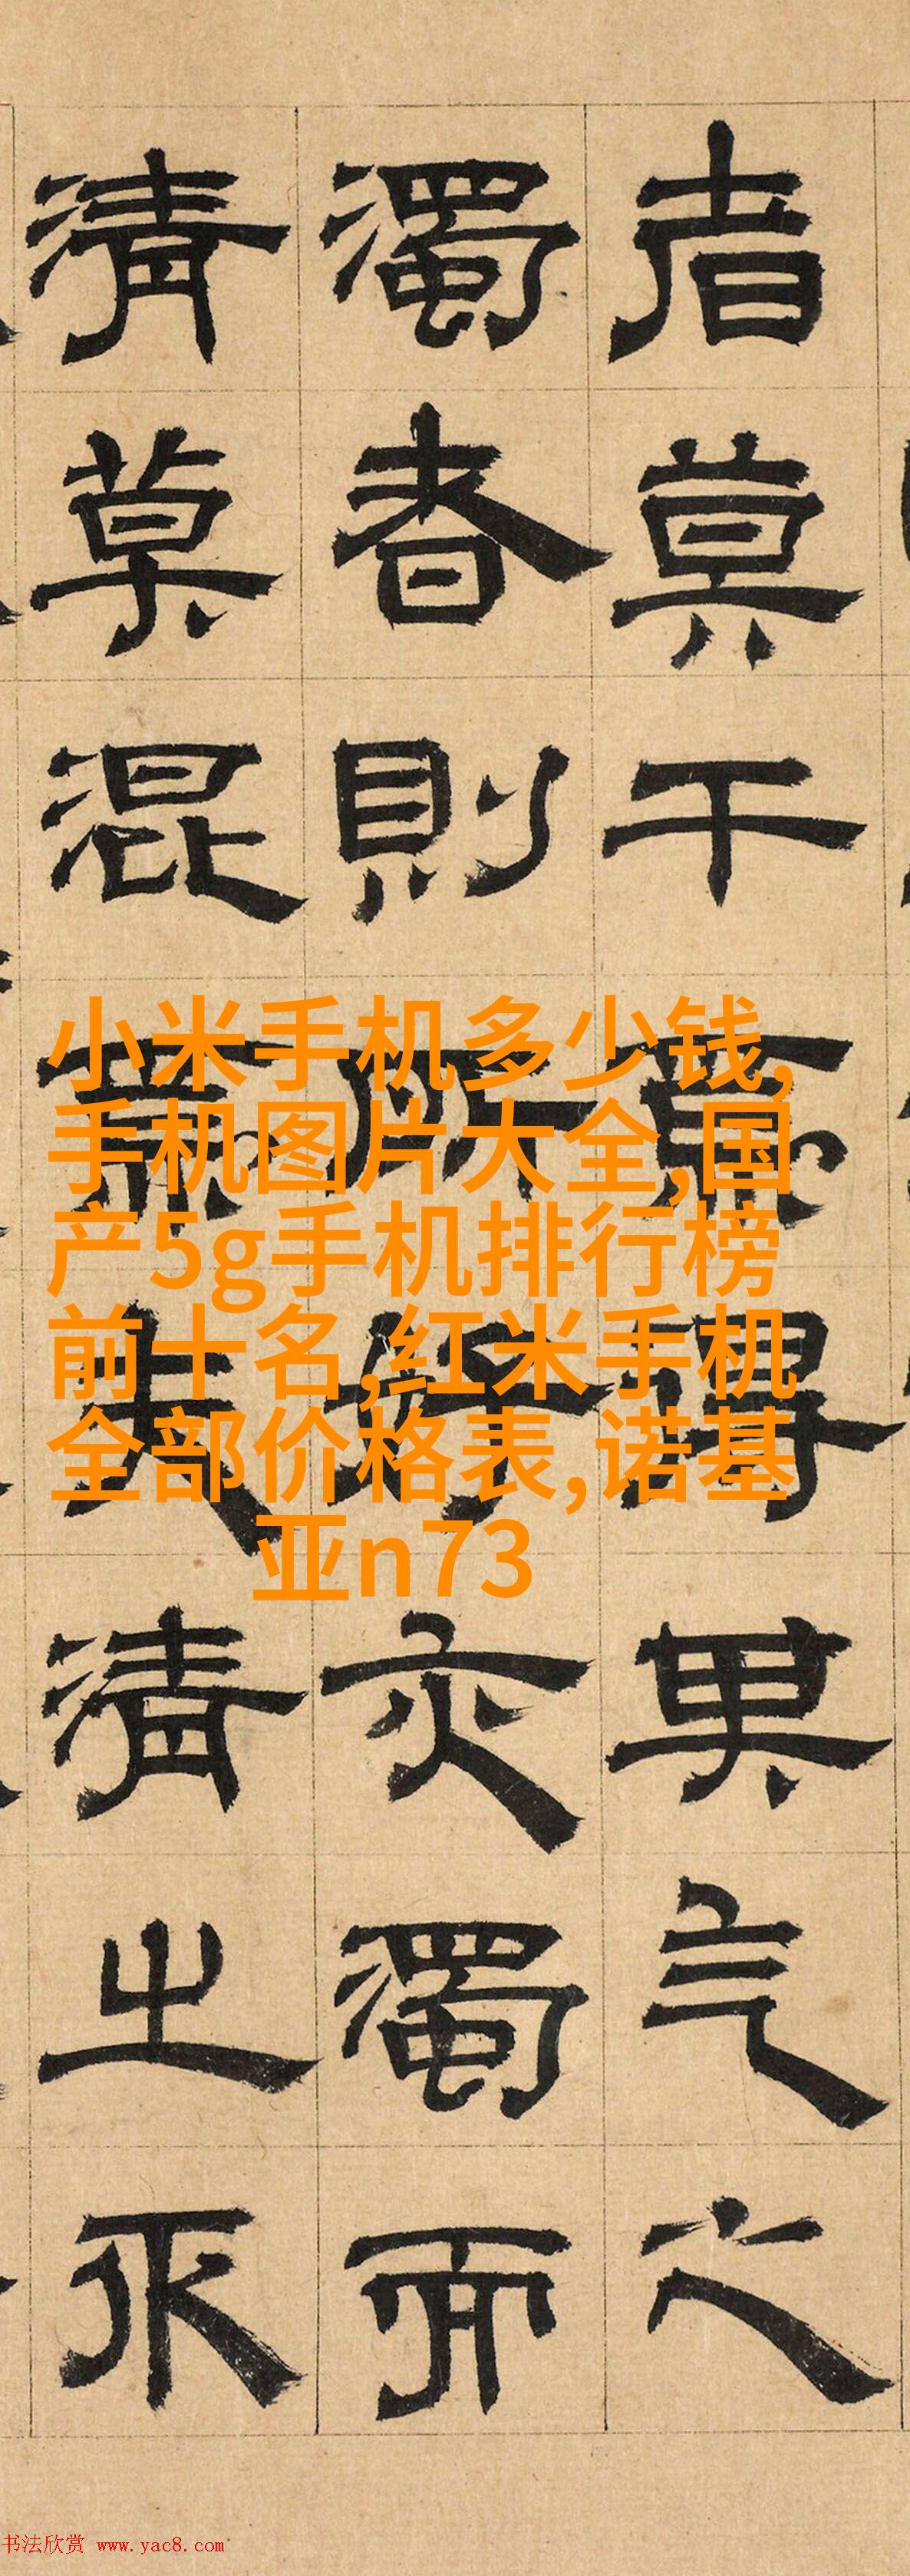 者莫干得其气之
濁者則所好亦濁而
清莫混清之
小米手机多少钱,
手机图片大全,国
产5g手机排行榜
前十名,红米手机
全部价格表,诺基
亚n73
书法欣赏 www.yac8.com